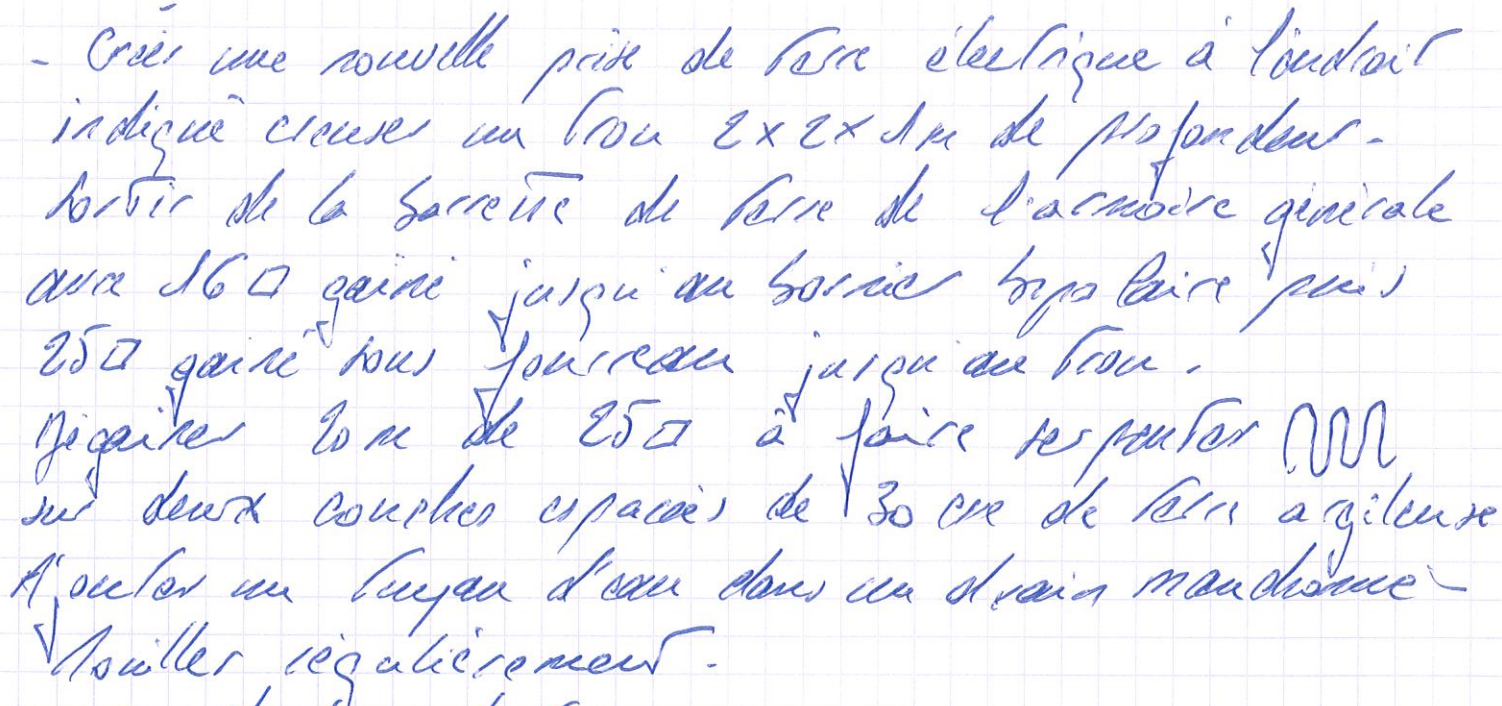 - Créer une nouvelle prise de terre électrique à l'endroit
indiqué creuser un trou 2x2x1m de profondeur.
Sortir de la barrette de terre de l'armoire générale
avec 16□ gainé jusqu'au bornier bipolaire puis
25□ gainé sous fourreau jusqu'au trou.
Dégainer 20m de 25□ à faire serpenter
sur deux couches espacées de 30 cm de terre argileuse
Ajouter un tuyau d'eau dans un drain
Mouiller régulièrement.